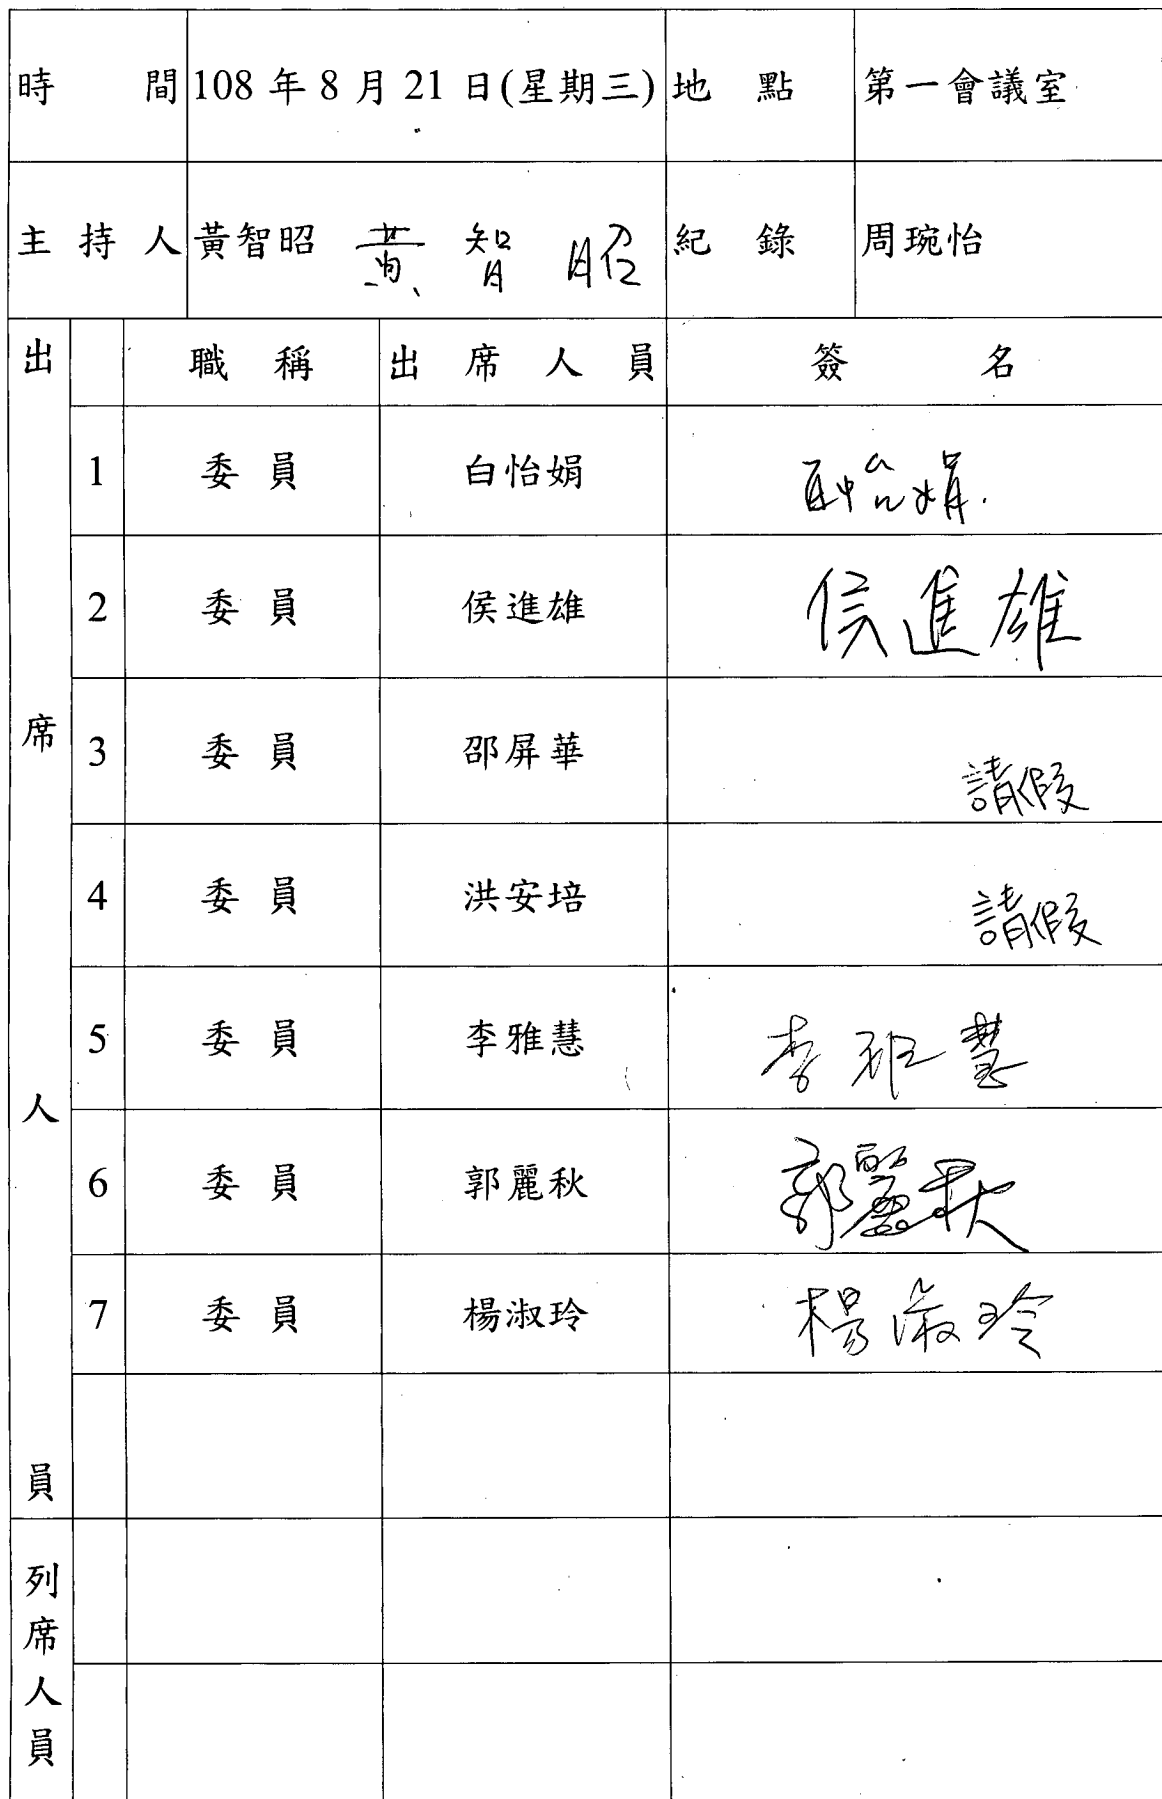 時 間 108 年 8 月 21 日(星期三) 地 點 第一會議室
主 持 人 黃智昭 黃 智 昭 紀 錄 周琬怡
出席人員 職 稱 出 席 人 員 簽 名
1 委 員 白怡娟 怡娟.
2 委 員 侯進雄 侯進雄
3 委 員 邵屏華 請假
4 委 員 洪安培 請假
5 委 員 李雅慧 李雅慧
6 委 員 郭麗秋 郭麗秋
7 委 員 楊淑玲 楊淑玲
列席人員